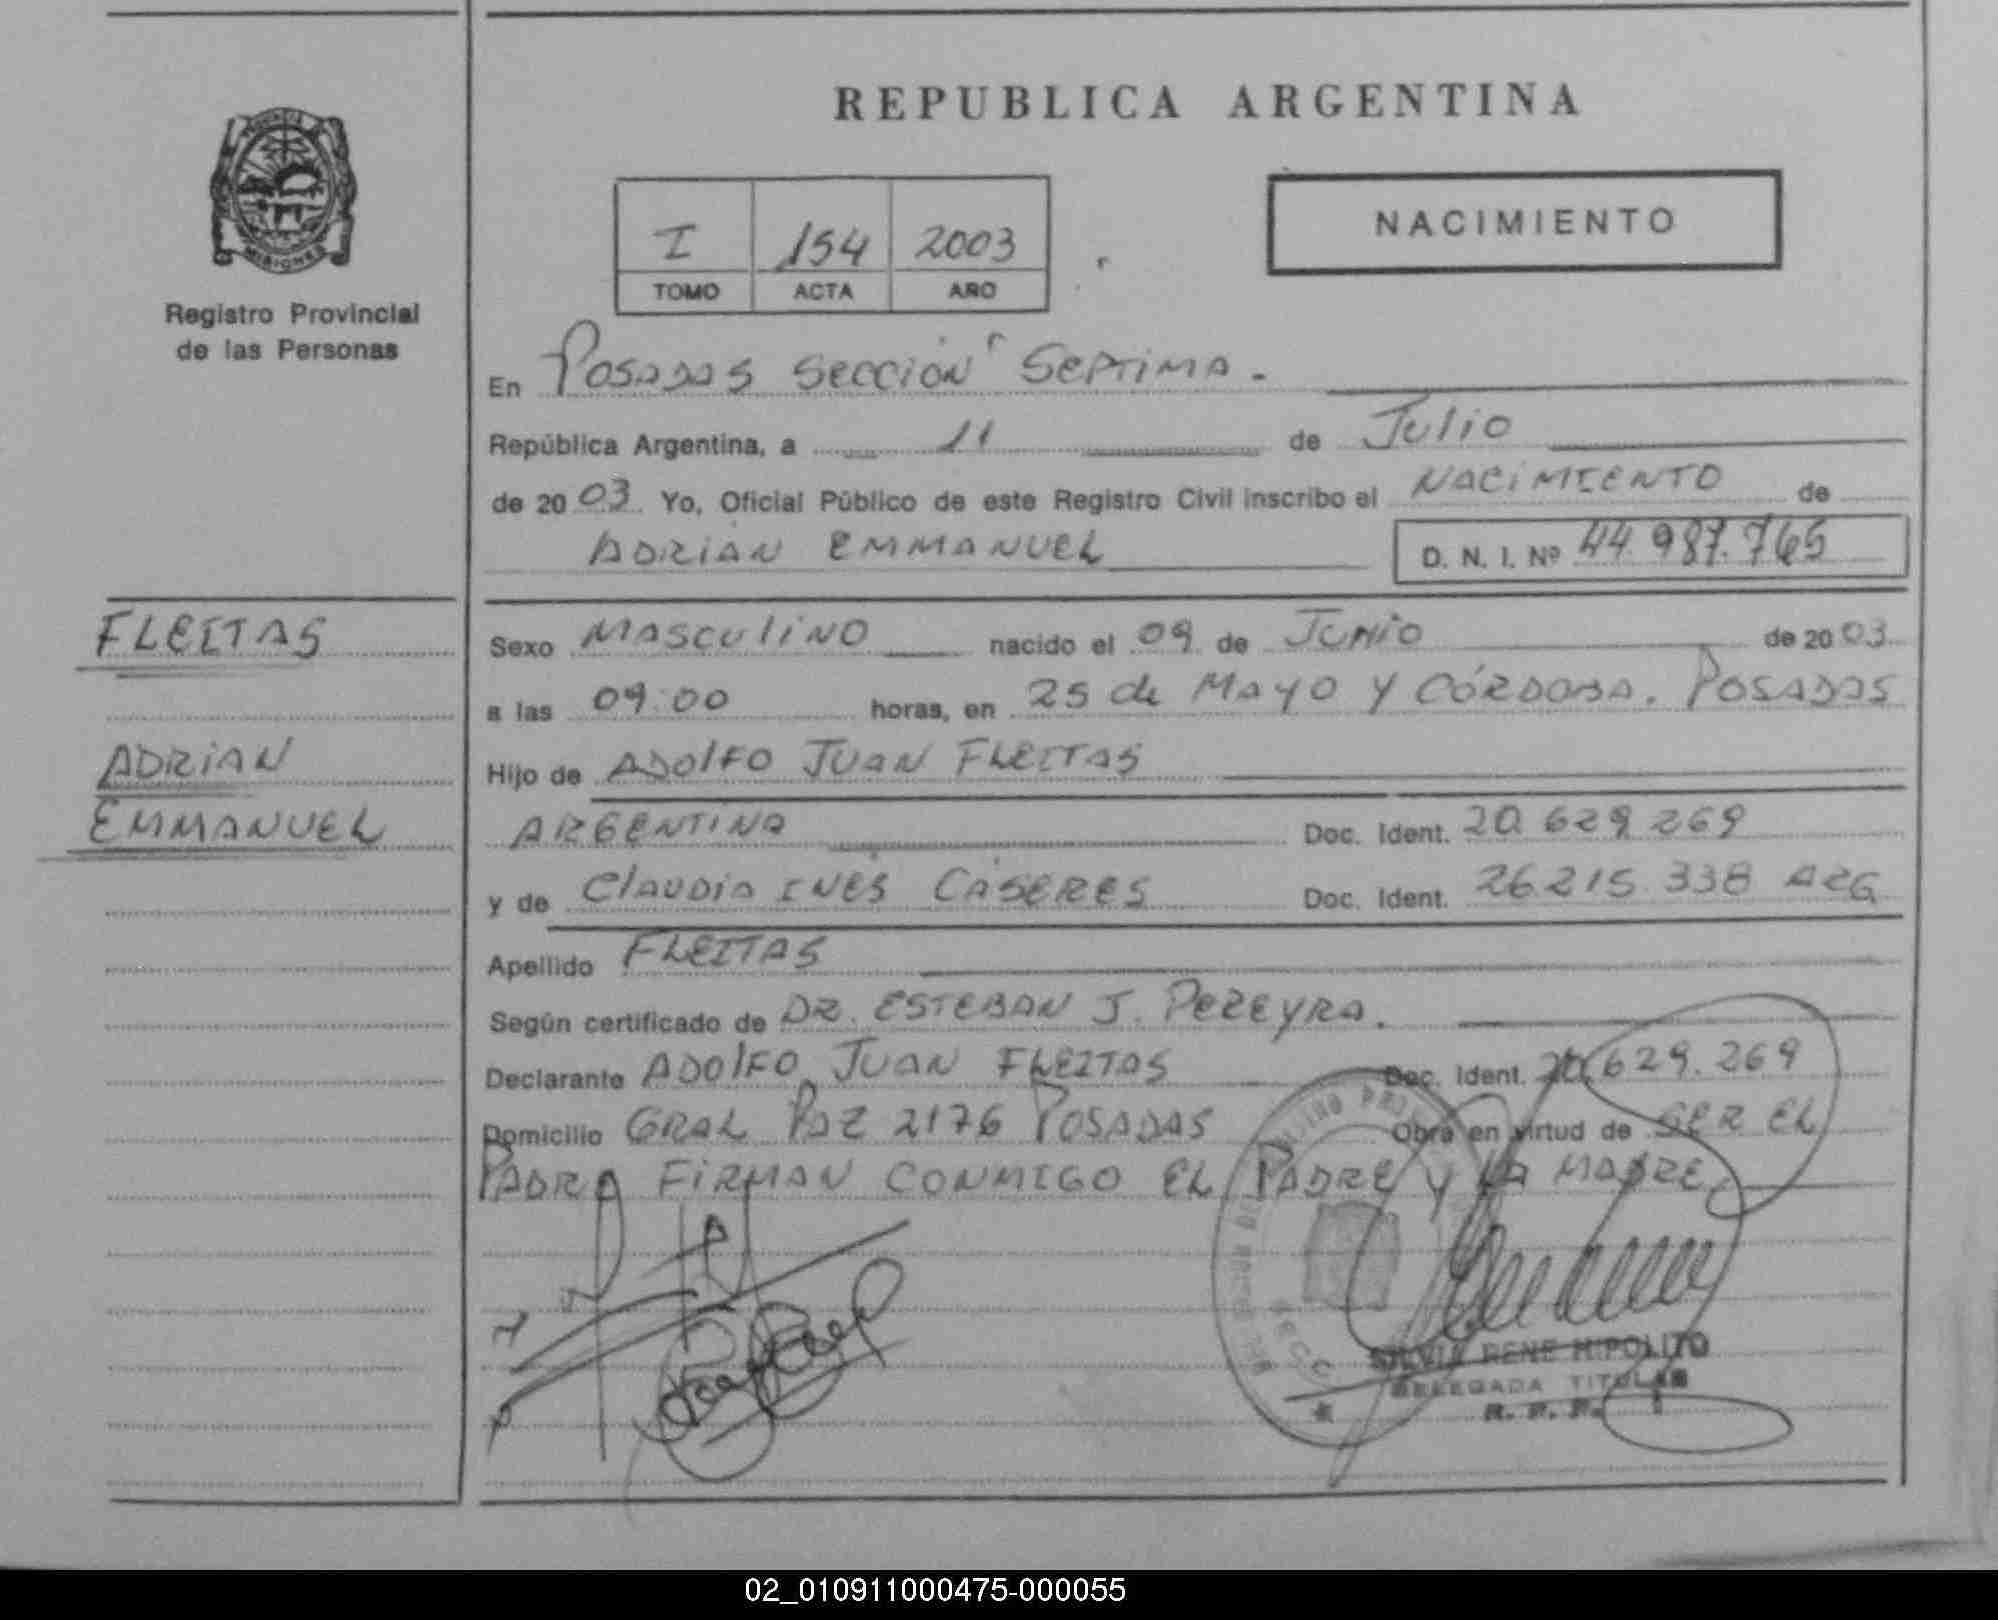 REPUBLICA ARGENTINA
PROVINCIA
MISIONES
Registro Provincial
de las Personas
NACIMIENTO
I 154 2003
TOMO ACTA AÑO
En Posadas Sección Septima.-
República Argentina, a 11 de Julio
de 20 03 Yo, Oficial Público de este Registro Civil inscribo el NACIMIENTO de
ADRIAN EMMANUEL D. N. I. Nº 44.987.765
FLEITAS
ADRIAN
EMMANUEL
Sexo MASCULINO nacido el 09 de JUNIO de 20 03
a las 09:00 horas, en 25 de MAYO Y CÓRDOBA. POSADAS
Hijo de ADOLFO JUAN FLEITAS
ARGENTINA Doc. Ident. 20.629.269
y de CLAUDIA INÉS CÁSERES Doc. Ident. 26.215.338 ARG
Apellido FLEITAS
Según certificado de DR. ESTEBAN J. PEREYRA.
Declarante ADOLFO JUAN FLEITAS Doc. Ident. 20.629.269
Domicilio GRAL PAZ 2176 POSADAS Obra en virtud de SER EL
PADRE FIRMAN CONMIGO EL PADRE Y LA MADRE
SILVIA RENE HIPOLITO
DELEGADA TITULAR
R. P. P.
02_010911000475-000055